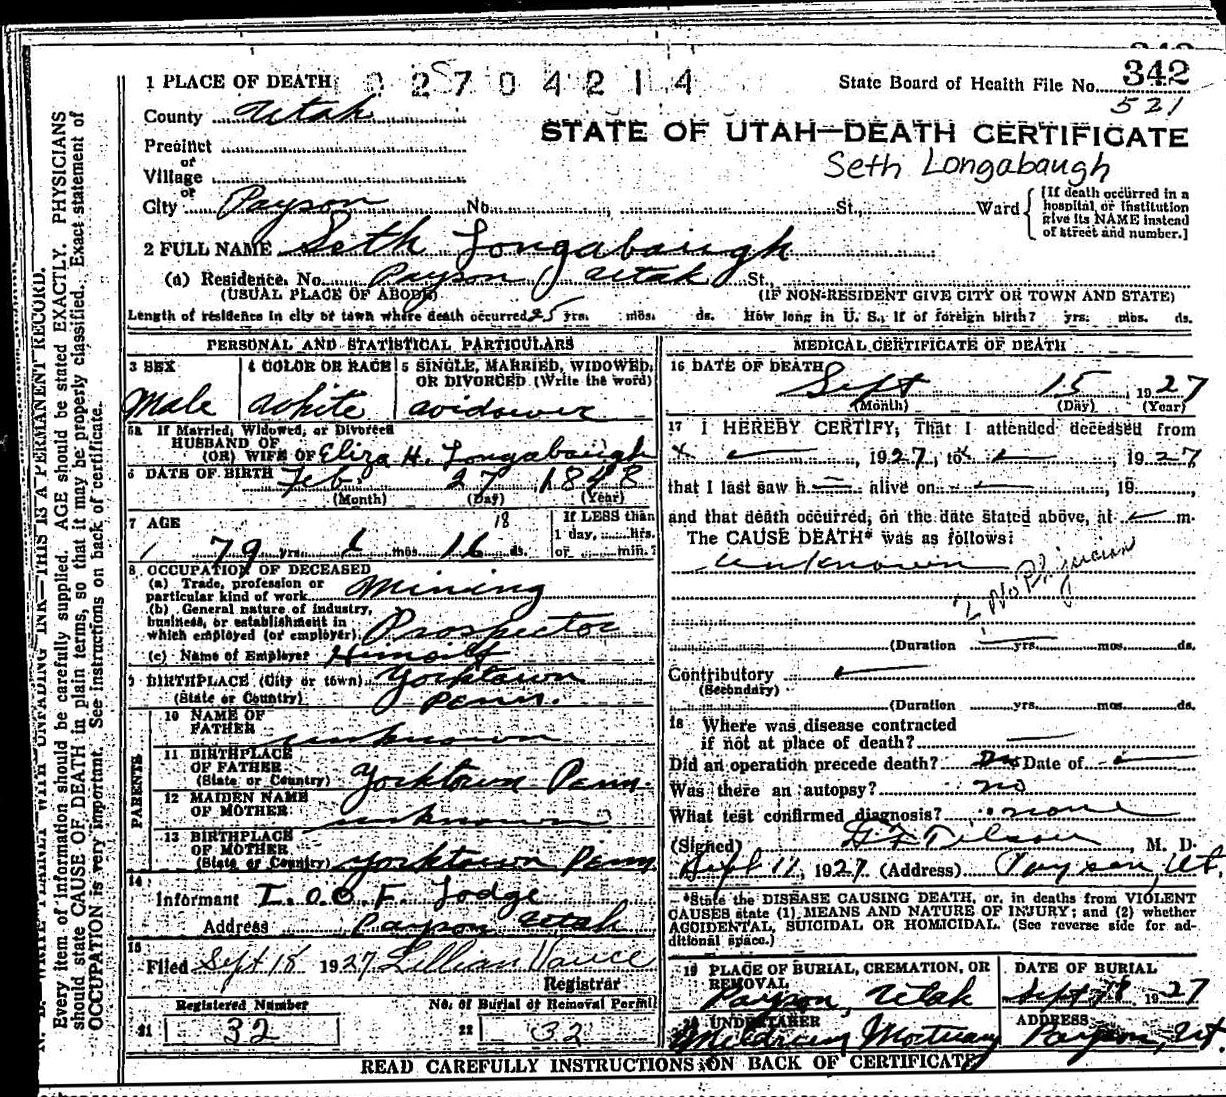 342
1 PLACE OF DEATH 0 2 7 0 4 2 1 4 State Board of Health File No. 342
521
County Utah
STATE OF UTAH—DEATH CERTIFICATE
Precinct
or
Village
Seth Longabaugh
or
City Payson No. St., Ward
[If death occurred in a hospital or institution give its NAME instead of street and number.]
2 FULL NAME Seth Longabaugh
(a) Residence. No. Payson Utah St.
(USUAL PLACE OF ABODE) (IF NON-RESIDENT GIVE CITY OR TOWN AND STATE)
Length of residence in city or town where death occurred 25 yrs. mos. ds. How long in U. S., if of foreign birth? yrs. mos. ds.
PERSONAL AND STATISTICAL PARTICULARS
3 SEX
Male
4 COLOR OR RACE
White
5 SINGLE, MARRIED, WIDOWED, OR DIVORCED (Write the word)
Widower
5a If Married, Widowed, or Divorced
HUSBAND OF
(OR) WIFE OF Eliza H. Longabaugh
6 DATE OF BIRTH Feb 27 1848
(Month) (Day) (Year)
7 AGE
79 yrs. 6 mos. 16 ds.
18
If LESS than
1 day, hrs.
or min.?
8 OCCUPATION OF DECEASED
(a) Trade, profession or
particular kind of work Mining
(b) General nature of industry,
business, or establishment in
which employed (or employer) Prospector
(c) Name of Employer Himself
9 BIRTHPLACE (City or town) Yorktown
(State or Country) Penn.
PARENTS
10 NAME OF
FATHER unknown
11 BIRTHPLACE
OF FATHER
(State or Country) Yorktown Penn.
12 MAIDEN NAME
OF MOTHER unknown
13 BIRTHPLACE
OF MOTHER
(State or Country) Yorktown Penn
14
Informant I. O. O. F. Lodge
Address Payson Utah
15
Filed Sept 18 1927 Lillian Vance
Registrar
Registered Number No. of Burial or Removal Permit
21 32 22 32
MEDICAL CERTIFICATE OF DEATH
16 DATE OF DEATH
Sept 15 1927
(Month) (Day) (Year)
17 I HEREBY CERTIFY, That I attended deceased from
, 1927, to , 1927
that I last saw h alive on , 19 ,
and that death occurred, on the date stated above, at m.
The CAUSE DEATH* was as follows:
unknown
No Physician
(Duration yrs. mos. ds.
Contributory
(Secondary)
(Duration yrs. mos. ds.
18 Where was disease contracted
if not at place of death?
Did an operation precede death? Date of
Was there an autopsy? no
What test confirmed diagnosis? none
(Signed) , M. D.
Sept 17, 1927 (Address) Payson, Ut.
*State the DISEASE CAUSING DEATH, or, in deaths from VIOLENT
CAUSES state (1) MEANS AND NATURE OF INJURY; and (2) whether
ACCIDENTAL, SUICIDAL OR HOMICIDAL. (See reverse side for ad-
ditional space.)
19 PLACE OF BURIAL, CREMATION, OR
REMOVAL
Payson, Utah
DATE OF BURIAL
Sept 18 1927
UNDERTAKER
Mortuary
ADDRESS
Payson, Ut.
READ CAREFULLY INSTRUCTIONS ON BACK OF CERTIFICATE
N. B. WRITE PLAINLY WITH UNFADING INK—THIS IS A PERMANENT RECORD.
Every item of information should be carefully supplied. AGE should be stated EXACTLY. PHYSICIANS
should state CAUSE OF DEATH in plain terms, so that it may be properly classified. Exact statement of
OCCUPATION is very important. See instructions on back of certificate.